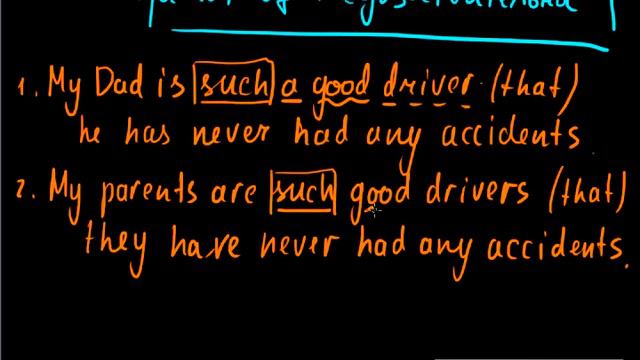 1. My Dad is such a good driver (that)
he has never had any accidents
2. My parents are such good drivers (that)
they have never had any accidents.